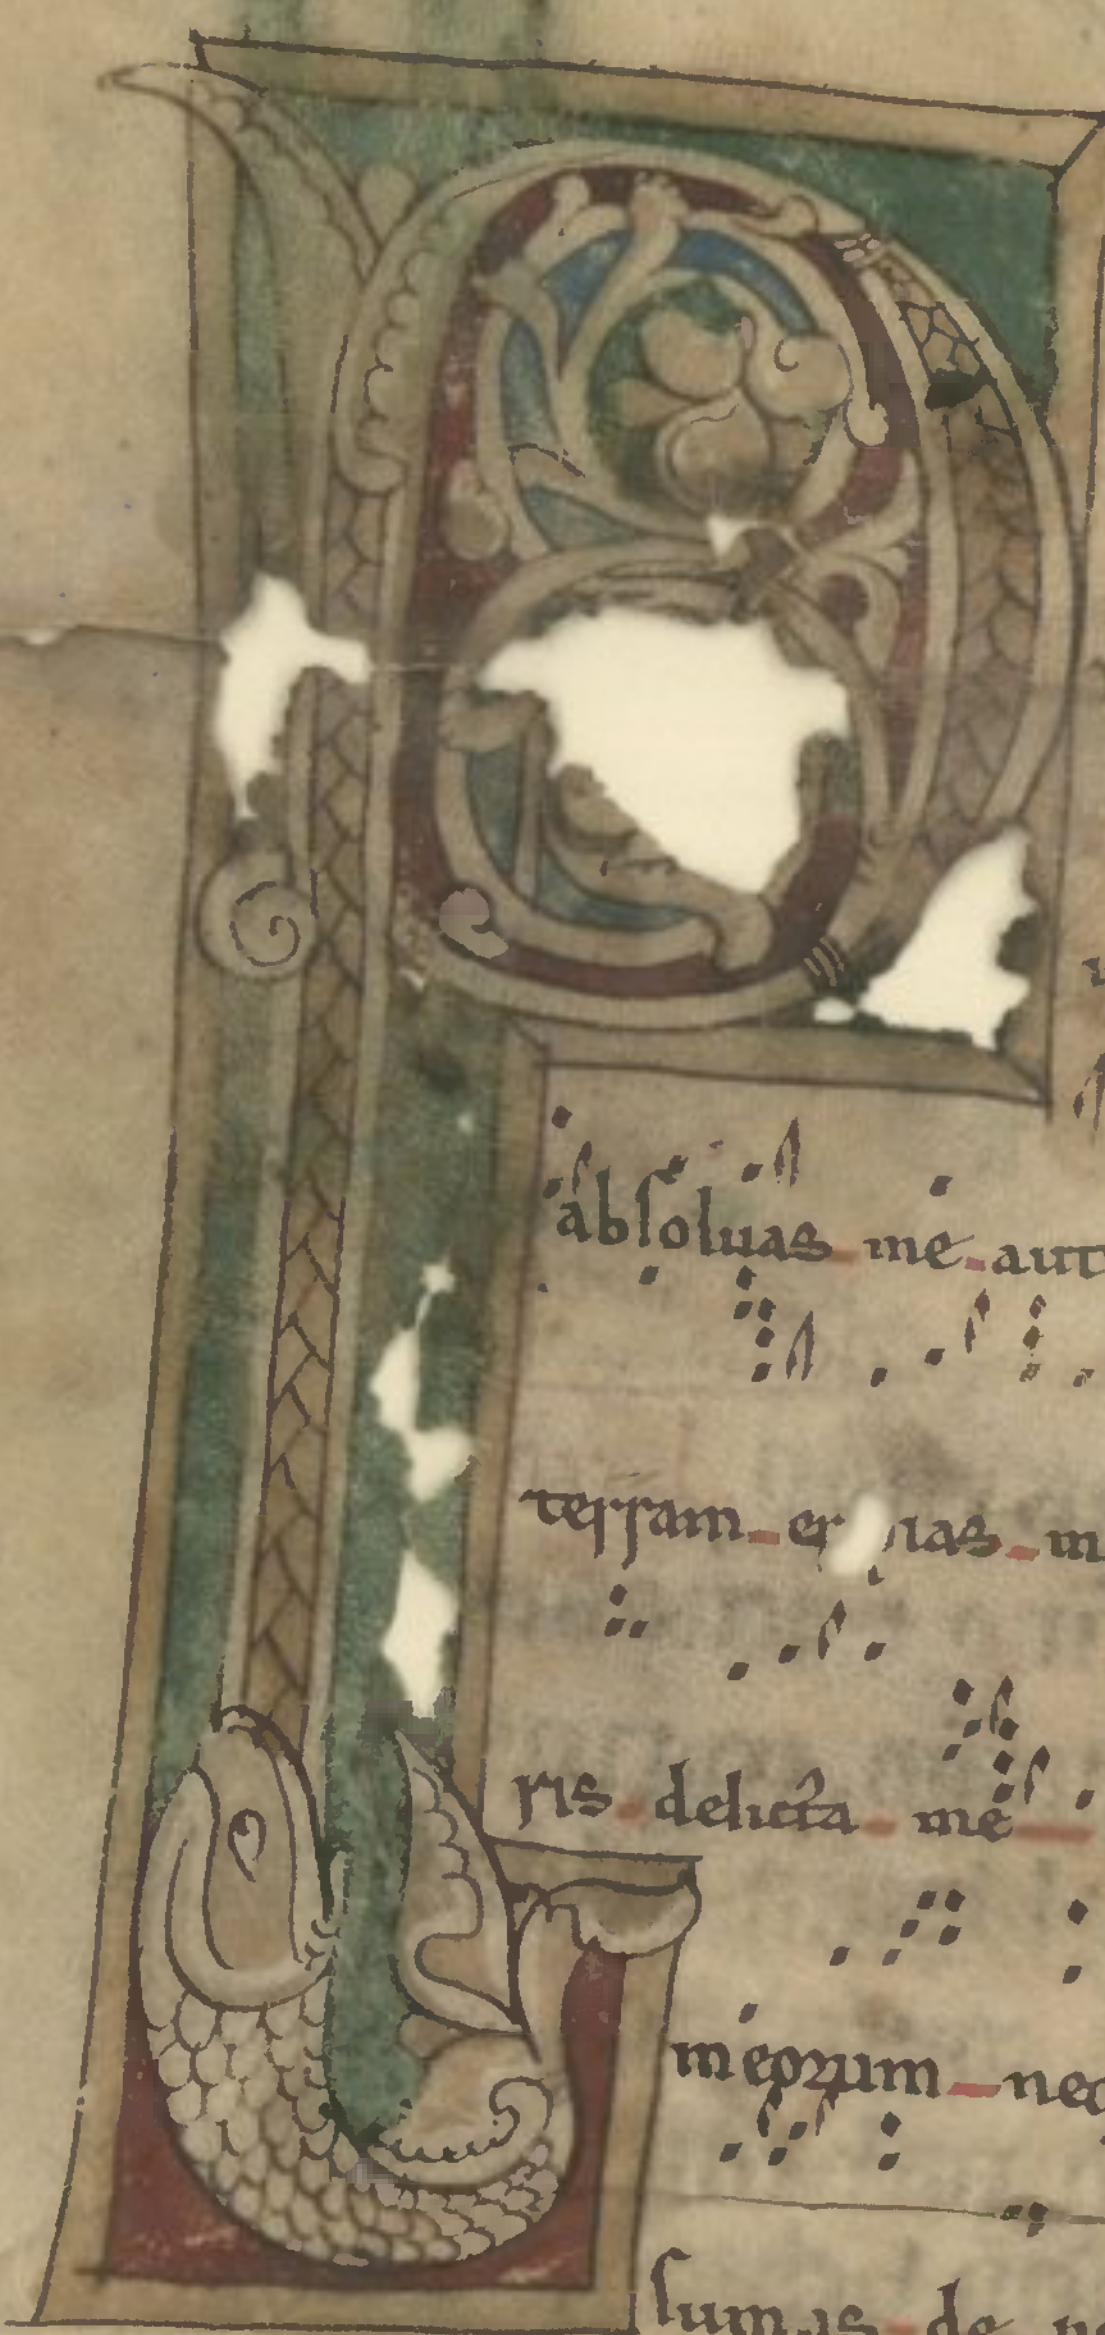 P
absoluas me aut
terram
ris delicta me
meorum nec
sumas de